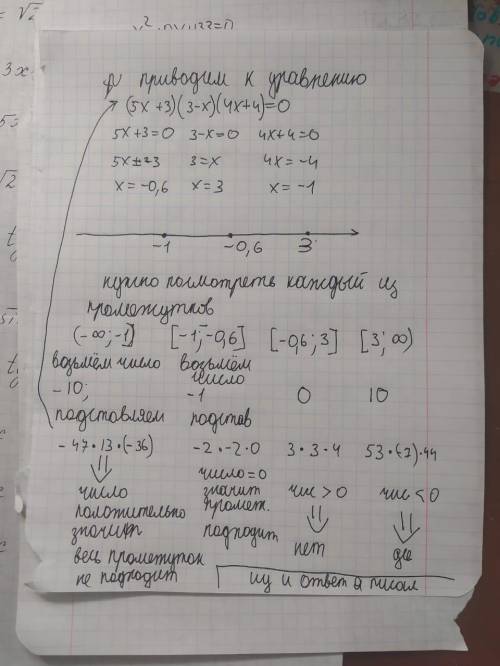 приводим к уравнению
(5x+3)(3-x)(4x+4)=0
5x+3=0 3-x=0 4x+4=0
5x=-3 3=x 4x=-4
x=-0,6 x=3 x=-1
-1 -0,6 3
нужно посмотреть каждый из
промежутков
(-∞;-1] [-1;-0,6] [-0,6;3] [3;∞)
возьмём число возьмём
число
-10; -1 0 10
подставляем подстав
-47·13·(-36) -2·-2·0 3·3·4 53·(-7)·44
число число=0
значит чис>0 чис<0
положительно промеж.
значит подходит
нет да
весь промежуток
не подходит ну и ответ я писал